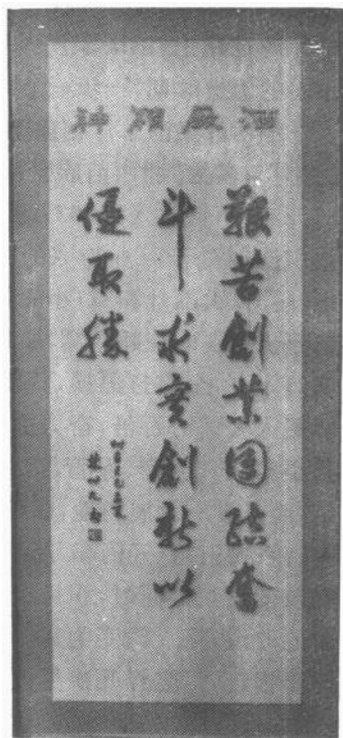 酒廠精神
艱苦創業團結奮
斗求實創新以
優取勝